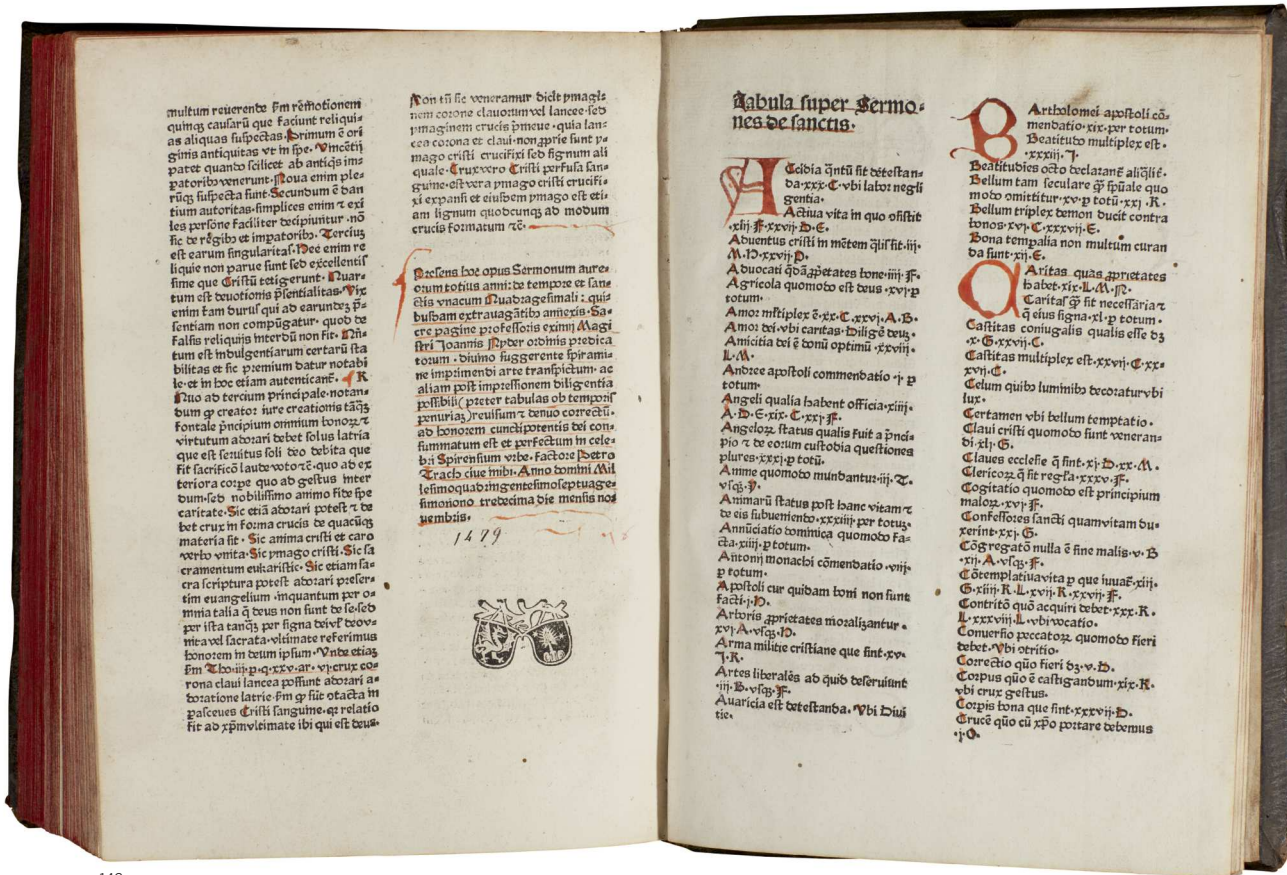 multum reuerende ẜm rēmotionem
quinqꝫ causarū que faciunt reliqui-
as aliquas suspectas. Primum ē ori
ginis antiquitas vt in spe. Vincētij
patet quando scilicet ab antiqis im-
patoribꝫ venerunt. Noua enim ple-
rūqꝫ suspecta sunt. Secundum ē dan
tium autoritas. simplices enim ⁊ exi
les persōne faciliter decipiuntur. nō
sic de rēgibꝫ et impatoribꝫ. Tercius
est earum singularitas. Hee enim re
liquie non parue sunt sed excellentis
sime que Cristū tetigerunt. Quar-
tum est deuotionis p̄sentialitas. Vix
enim tam durus qui ad earundeꝫ p̄-
sentiam non compūgatur. quod de
falsis reliquijs interdū non fit. Qīn-
tum est indulgentiarum certarū sta
bilitas et sic premium datur notabi
le. et in hoc etiam autenticant̄. R
Quo ad tercium principale. notan-
dum ꝙ creator iure creationis tāqꝫ
fontale p̄ncipium omnium bonoꝝ ⁊
virtutum adorari debet solus latria
que est seruitus soli deo debita que
fit sacrificō laude voto ⁊c. quo ad ex
teriora corpe quo ad gestus inter
dum. sed nobilissimo animo fide spe
caritate. Sic etiā adorari potest ⁊ de
bet crux in forma crucis de quacūqꝫ
materia fit. Sic anima cristi et caro
verbo vnita. Sic ymago cristi. Sic sa
cramentum eukaristie. Sic etiam sa-
cra scriptura potest adorari preser-
tim euangelium. inquantum per o-
mnia talia q̄ deus non sunt de se. sed
per ista tanqꝫ per signa deo v-
nita vel sacrata. vltimate referimus
honorem in deum ipsum. Vnde etiaꝫ
ẜm Tho. iij. p. q. xxv. ar. vj. crux co-
rona claui lancea possunt adorari a-
doratione latrie. ẜm ꝙ sūt ɔtacta in
pasceues Cristi sanguine. qꝛ relatio
fit ad xp̄m vltimate ibi qui est deus.
Non tn̄ sic veneramur dicit ymagi-
nem corone clauorum vel lancee. sed
ymaginem crucis p̄meue. quia lan-
cea corona et claui. non ꝓprie sunt y-
mago cristi crucifixi sed signum ali
quale. Crux vero Cristi perfusa san-
guine. est vera ymago cristi crucifi-
xi expansi et eiusdem ymago est eti-
am lignum quodcunqꝫ ad modum
crucis formatum ⁊c.
Presens hoc opus Sermonum aure-
orum totius anni: de tempore et san-
ctis vnacum Quadragesimali: qui-
busdam extrauagātibꝫ annexis. Sa-
cre pagine professoris eximij Magi
stri Joannis Nyder ordinis predica
torum. diuino suggerente spirami-
ne imprimendi arte transpictum. ac
aliam post impressionem diligentia
possibili (preter tabulas ob temporis
penuriaꝫ) reuisum ⁊ denuo correctū.
ad honorem cunctipotentis dei con-
summatum est et perfectum in cele-
bri Spirensium vrbe. factore Petro
Trach ciue inibi. Anno domini Mil
lesimoquadringentesimoseptuage-
simonono tredecima die mensis no-
uembris.
1479
Tabula super Sermo-
nes de sanctis.
ACcidia qn̄tū sit detestan-
da. xxx. C. vbi labor negli
gentia.
Actiua vita in quo ɔsistit
.xiij. F. xxvij. D. E.
Aduentus cristi in mētem qͥlis sit. iij.
M. N. xxvij. P.
Aduocati qͥdā ꝓpetates bone. iiij. F.
Agricola quomodo est deus. xvj. ꝑ
totum.
Amor mltiplex ē. xx. C. xxvj. A. B.
Amor dei. vbi caritas. Diligē deuꝫ.
Amicitia dei ē bonū optimū. xxviij.
L. M.
Andree apostoli commendatio. j. ꝑ
totum.
Angeli qualia habent officia. xiiij.
A. D. E. xix. C. xxj. F.
Angeloꝝ status qualis fuit a p̄nci-
pio ⁊ de eorum custodia questiones
plures. xxxj. ꝑ totū.
Anime quomodo mundantur. iij. T.
vsqꝫ. Y.
Animarū status post hanc vitam ⁊
de eis subueniendo. xxxiiij. per totuꝫ.
Annūciatio dominica quomodo fa-
cta. xiiij. ꝑ totum.
Antonij monachi cōmendatio. viij.
ꝑ totum.
Apostoli cur quidam boni non sunt
facti. j. H.
Arboris ꝓprietates moralizantur.
xvj. A. vsqꝫ. H.
Arma militie cristiane que sint. xv.
J. K.
Artes liberales ad quid deseruiunt
.iij. B. vsqꝫ. F.
Auaricia est detestanda. Vbi Diui
tie.
BArtholomei apostoli cō-
mendatio. xix. per totum.
Beatitudo multiplex est.
.xxxiij. J.
Beatitudies octo declarant̄ aliqͥlit̄.
Bellum tam seculare ꝙ̄ sp̄uale quo
modo omittitur. xv. ꝑ totū. xxj. R.
Bellum triplex demon ducit contra
bonos. xvj. C. xxxvij. E.
Bona tempalia non multum curan
da sunt. xij. E.
CAritas quas ꝓprietates
habet. ix. L. M. N.
Caritas ꝙ̄ sit necessaria ⁊
q̄ eius signa. xl. ꝑ totum.
Castitas coniugalis qualis esse dꝫ
.x. G. xxvij. C.
Castitas multiplex est. xxvij. C. xx-
xvij. C.
Celum quibꝫ luminibꝫ decoratur vbi
lux.
Certamen vbi bellum temptatio.
Claui cristi quomodo sunt veneran-
di. xlj. G.
Claues ecclesie q̄ sint. xj. D. xx. M.
Clericoꝝ q̄ sit regl̄a. xxxv. F.
Cogitatio quomodo est principium
maloꝝ. xvj. F.
Confessores sancti quam vitam du-
xerint. xxj. G.
Cōgregatō nulla ē sine malis. v. B
.xij. A. vsqꝫ. F.
Cōtemplatiua vita ꝑ que iuuat̄. xiij.
G. xiiij. K. L. xvij. K. xxvij. F.
Contritō quō acquiri debet. xxx. K.
L. xxxviij. L. vbi vocatio.
Conuersio peccatoꝝ quomodo fieri
debet. Vbi ɔtritio.
Correctio qūo fieri dꝫ. v. D.
Corpus qūo ē castigandum. xix. K.
vbi crux gestus.
Corpis bona que sint. xxxvij. D.
Crucē qūo cū xp̄o portare debemus
.j. O.